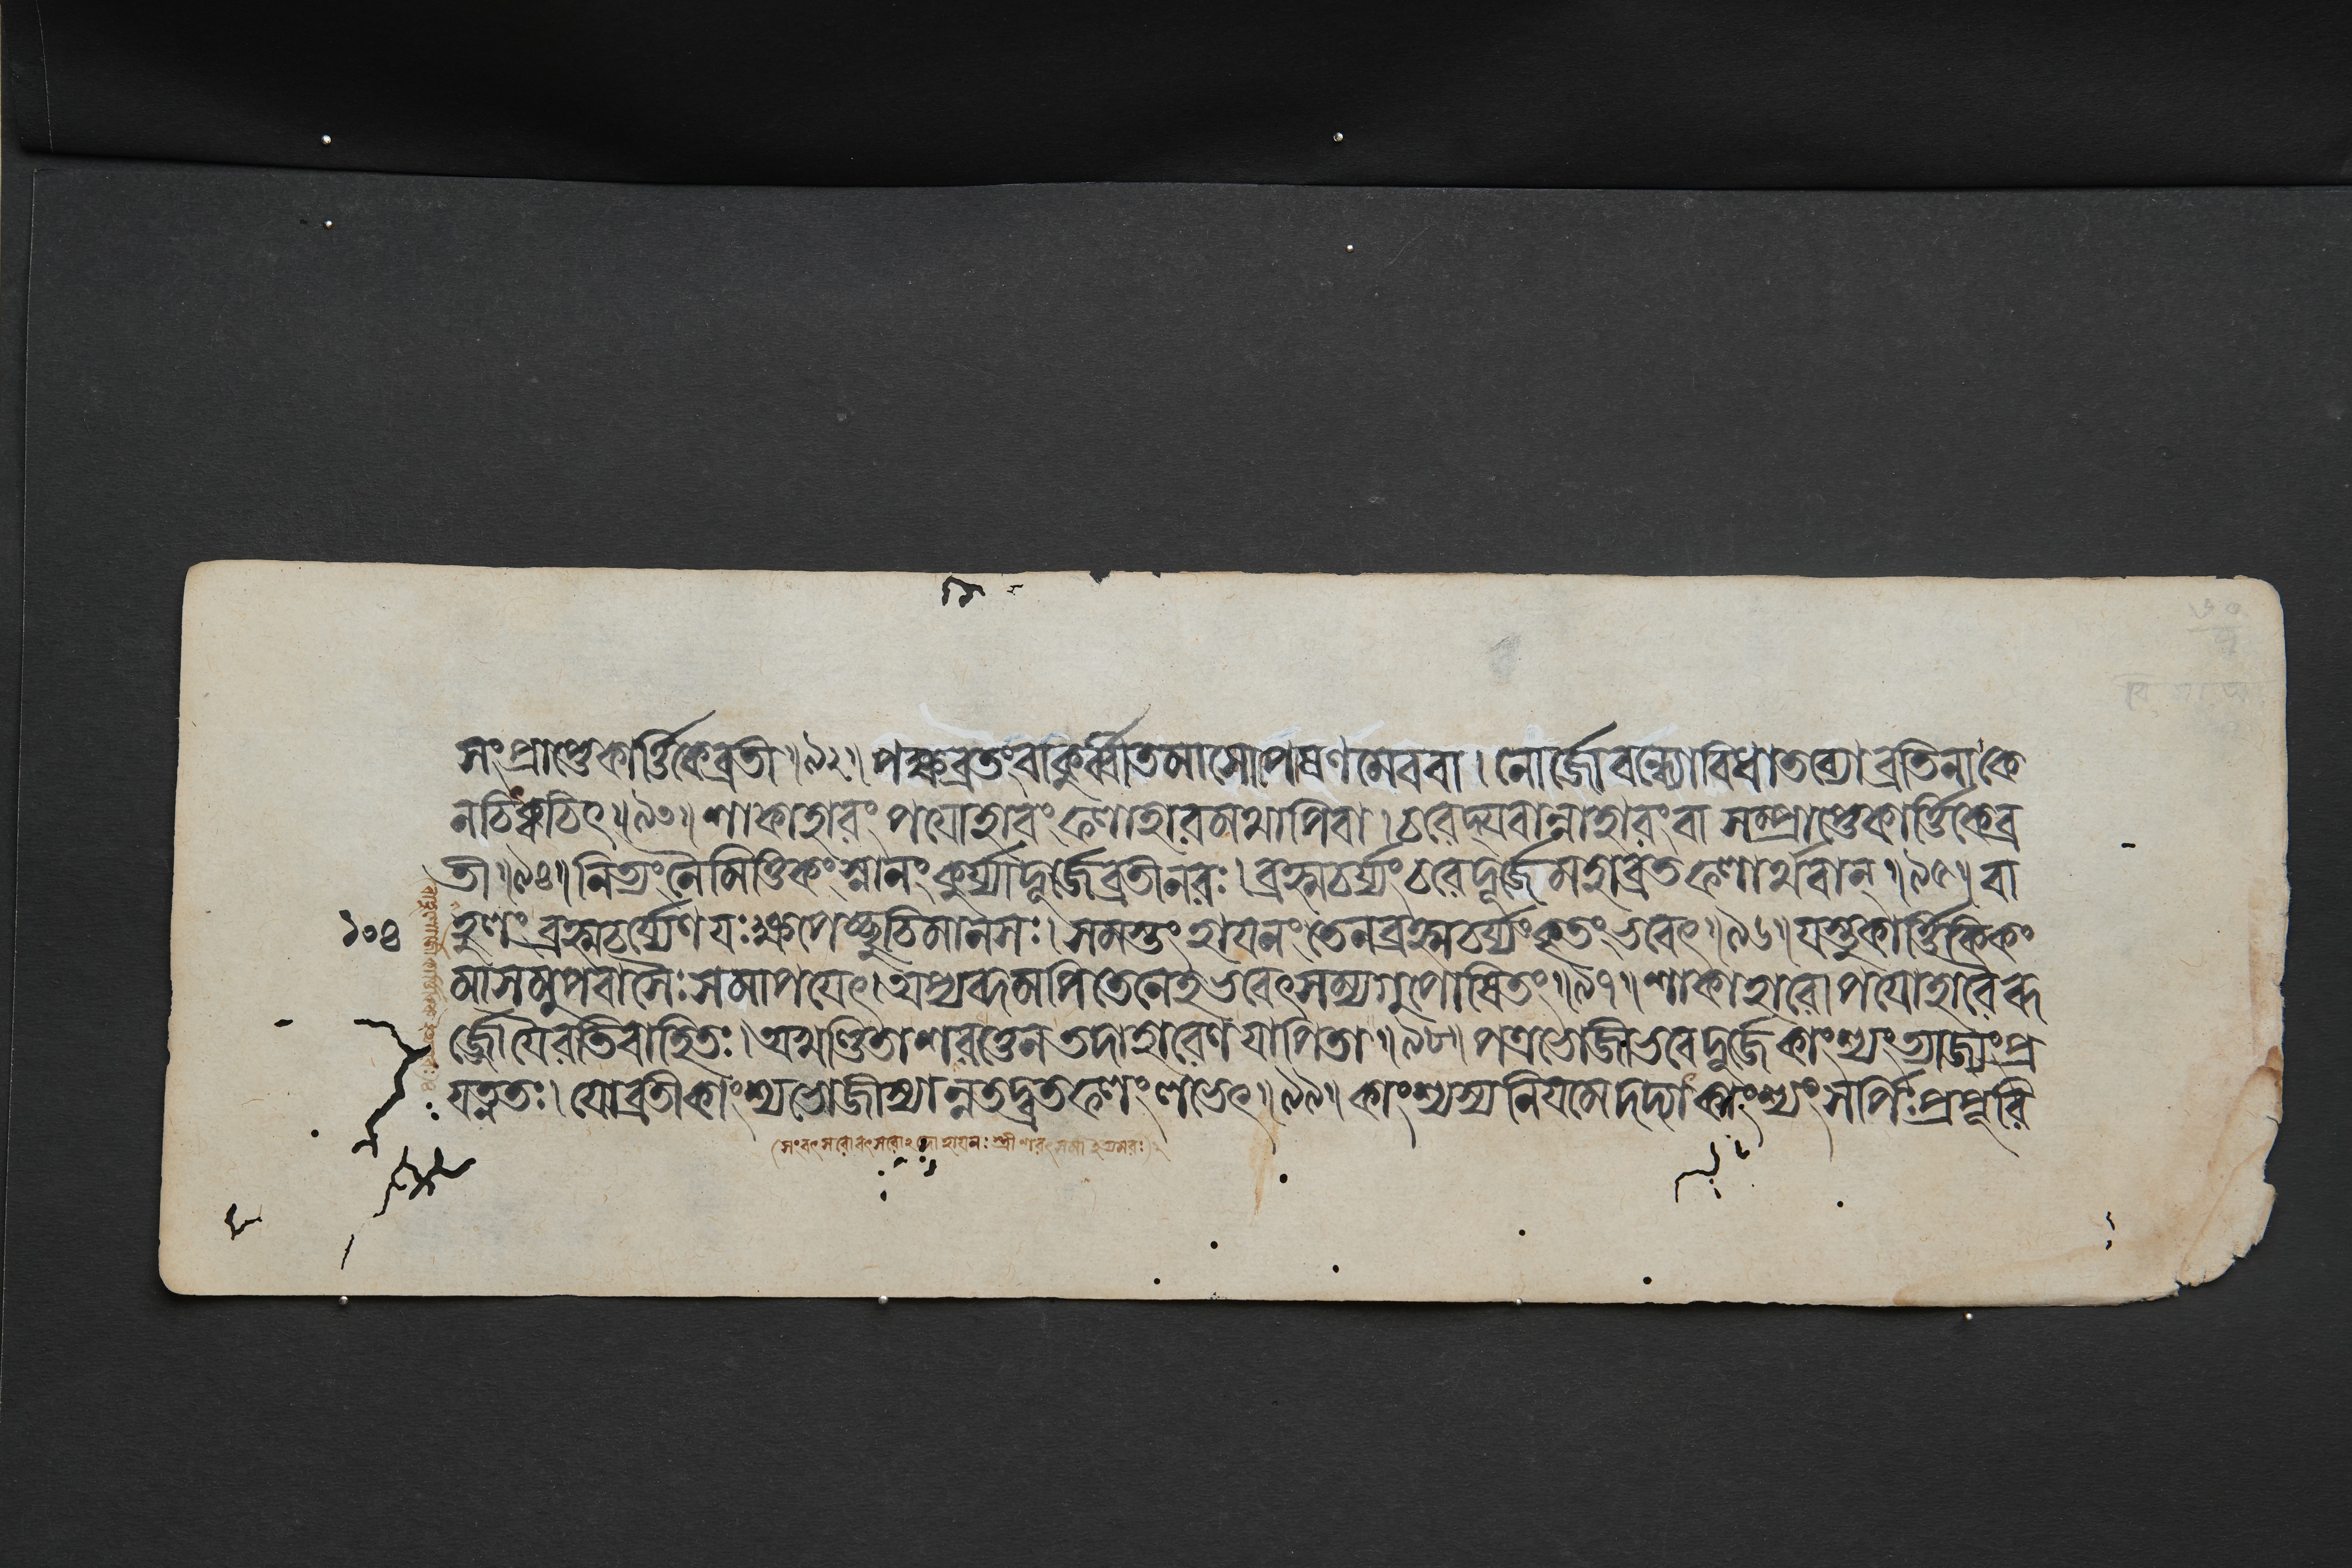 সংপ্রাপ্তেকার্ত্তিকেব্রতী॥৯২॥ পক্ষব্রতংবাকুর্ব্বীতমাসোপষণমেববা। নোর্জোবন্ধ্যোবিধাতব্যোব্রতিনাকে
নচিৎক্বচিৎ॥৯৩॥ শাকাহারং পযোহারং ফলাহারমথাপিবা। চরেদ্যবান্নাহারংবা সম্প্রাপ্তেকার্ত্তিকেব্র
তী॥৯৪॥ নিত্যংনৈমিত্তিকংস্নানংকুর্য্যাদূর্জেব্রতীনরঃ। ব্রহ্মচর্য্যংচরেদূর্জেমহাব্রতফলার্থবান্॥৯৫॥ বা
১০৪ হুলং ব্রহ্মচর্য্যেণ যঃক্ষপেচ্ছুচিমানসঃ। সমস্তং হাযনং তেনব্রহ্মচর্য্যংকৃতংভবেৎ॥৯৬॥ যস্তুকার্ত্তিকিকং
মাসমুপবাসৈঃসমাপযেৎ। অপ্যব্দমপিতেনেহভবেৎসম্যগুপোষিতং॥৯৭॥ শাকাহারোপযোহারৈরূ
র্জোযৈরতিবাহিতঃ। অখণ্ডিতাশরত্তেনতদাহারেণযাপিতা॥৯৮॥ পত্রভোজীভবেদূর্জেকাংস্যংত্যাজ্যংপ্র
যত্নতঃ। যোব্রতীকাংস্যভোজীস্যান্নতদ্ব্রতফলংলভেৎ॥৯৯॥ কাংস্যস্যনিযমেদদ্যাৎকাংস্যংসর্পিঃপ্রপূরি
(সংবৎসরোবৎসরোঽব্দোহাযনঃস্ত্রীশরৎসমাইত্যমরঃ)